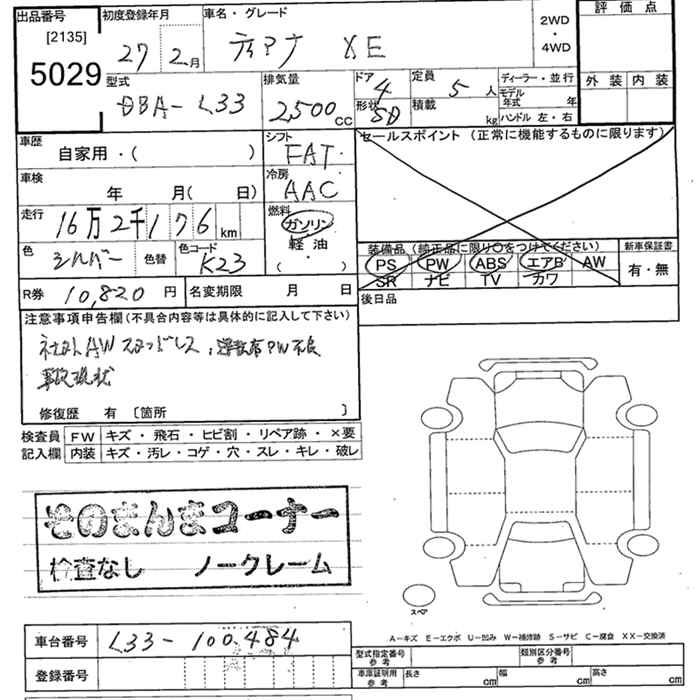 出品番号
[2135]
5029
初度登録年月
27 2月
車名・グレード
ティアナ XE
2WD
・
4WD
評価点
外装 内装
型式
DBA-L33
排気量
2,500 CC
ドア
4
形状
SD
定員
5 人
積載
kg
ディーラー・並行
モデル
年式 年
ハンドル 左・右
車歴
自家用・( )
シフト
FAT
セールスポイント (正常に機能するものに限ります)
車検
年 月( 日)
冷房
AAC
走行
16万2千176 km
燃料
ガソリン
軽油
・
( )
色
シルバー
色替
色コード
K23
装備品 (純正品に限り○をつけてください)
PS PW ABS エアB AW
SR ナビ TV カワ
新車保証書
有・無
R券 10,820 円
名変期限 月 日
後日品
注意事項申告欄(不具合内容等は具体的に記入して下さい)
社外AW スタッドレス
PW不良
事故現状
修復歴 有 〔箇所 〕
検査員
記入欄
FW キズ・飛石・ヒビ割・リペア跡・×要
内装 キズ・汚レ・コゲ・穴・スレ・キレ・破レ
そのまんまコーナー
検査なし ノークレーム
スペア
A-キズ E-エクボ U-凹み W-補修跡 S-サビ C-腐食 XX-交換済
車台番号 L33-100484
登録番号
型式指定番号
参考
類別区分番号
参考
車庫証明用
参考
長さ cm 幅 cm 高さ cm